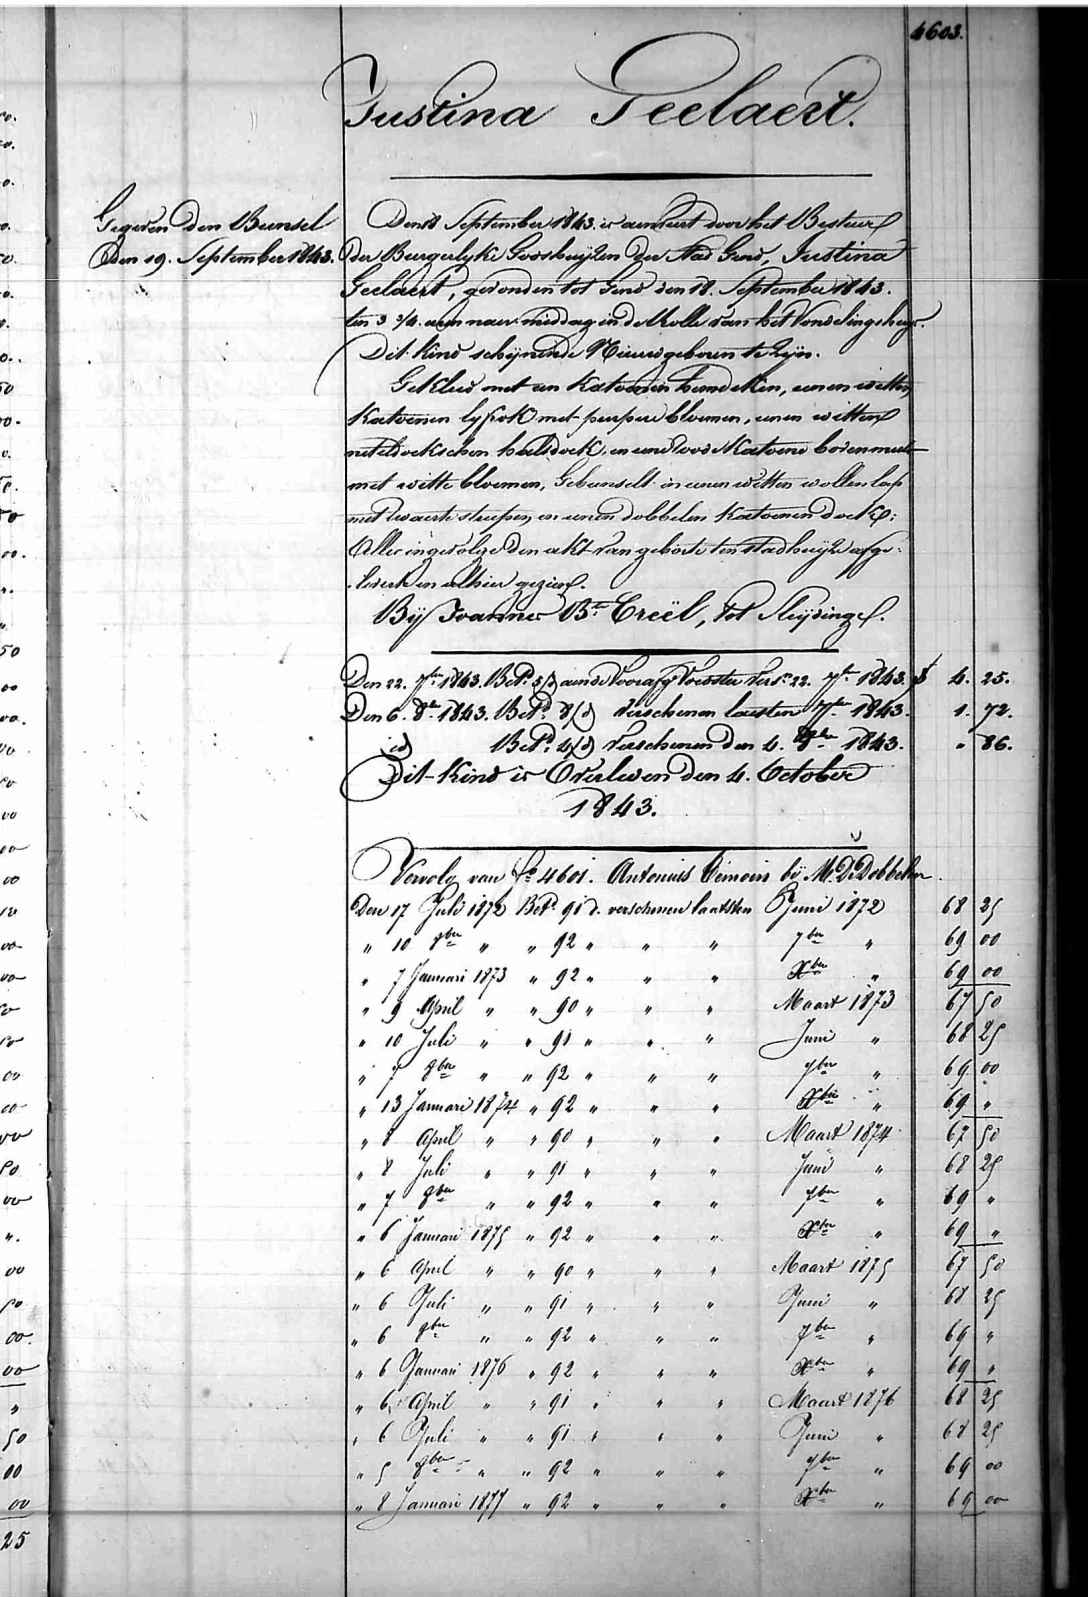 4603.
Justina Geelaert.
Gegeven den Bunsel
den 19. September 1843.
Den 18 September 1843. is aenveert door het Bestuur
der Burgerlyke Godshuyzen der stad Gend, Justina
Geelaert, gevonden tot Gend den 18. September 1843.
ten 3 3/4. uren naer middag in de Rolle van het Vondelingshuys.
Dit Kind schynende Nieuwgeboren te zyn.
Gekleed met een Katoenen hemdeken, eenen witten
Katoenen lyfrok met purpere bloemen, eenen witten
neteldoekschen halsdoek, en eene roode Katoene bovenmuts
met witte bloemen, Gebunselt in eenen witten wollen lap
met zwarte streepen en eenen dobbelen Katoenen doek &:
Alles ingevolge den akt van geborte ten stadhuyze afge-
leverd en alhier gezien.
By Joannes Bte Creël, tot Sleydinge.
Den 22. 7br 1843. Betd 3/d aen de Voorafg Voedster vers. 22. 7br 1843. f 4. 25.
Den 6. 8br 1843. Betd 8/d verschenen laesten 7br 1843. 1. 72.
id) Betd 4/d verschenen den 4. 8ber 1843. " 86.
Dit Kind is Overleden den 4. October
1843.
Vervolg van fo 4601. Antonius Simoens bÿ M. De Dobbelaer.
Den 17 Juli 1872 Betd 91 d. verschenen laatsten Juni 1872 68 25
" 10 8ber " " 92 " " " 7ber " 69 00
" 7 Januari 1873 " 92 " " " Xber " 69 00
" 9 April " " 90 " " " Maart 1873 67 50
" 10 Juli " " 91 " " " Juni " 68 25
" 7 8ber " " 92 " " " 7ber " 69 00
" 13 Januari 1874 " 92 " " " Xber " 69 "
" 8 April " " 90 " " " Maart 1874 67 50
" 8 Juli " " 91 " " " Juni " 68 25
" 7 8ber " " 92 " " " 7ber " 69 "
" 6 Januari 1875 " 92 " " " Xber " 69 "
" 6 April " " 90 " " " Maart 1875 67 50
" 6 Juli " " 91 " " " Juni " 68 25
" 6 8ber " " 92 " " " 7ber " 69 "
" 6 Januari 1876 " 92 " " " Xber " 69 "
" 6 April " " 91 " " " Maart 1876 68 25
" 6 Juli " " 91 " " " Juni " 68 25
" 5 8ber " " 92 " " " 7ber " 69 00
" 8 Januari 1877 " 92 " " " Xber " 69 00